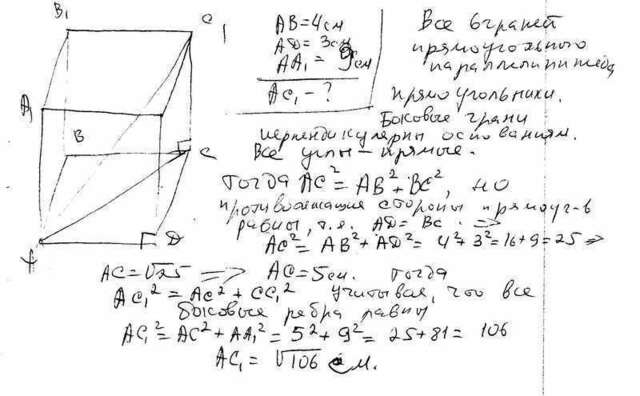 B₁
C₁
A₁
B
C
A
D
AB=4см
AD=3см
AA₁=9см
AC₁-?
Все 6 граней
прямоугольного
параллелипипеда
прямоугольники.
Боковые грани
перпендикулярны основаниям.
Все углы - прямые.
Тогда AC²=AB²+BC², но
противолежащие стороны прямоуг-в
равны, т.е. AD=BC. =>
AC²=AB²+AD²=4²+3²=16+9=25 =>
AC=√25 => AC=5см. Тогда
AC₁²=AC²+CC₁² учитывая, что все
боковые ребра равны
AC₁²=AC²+AA₁²=5²+9²=25+81=106
AC₁=√106 см.